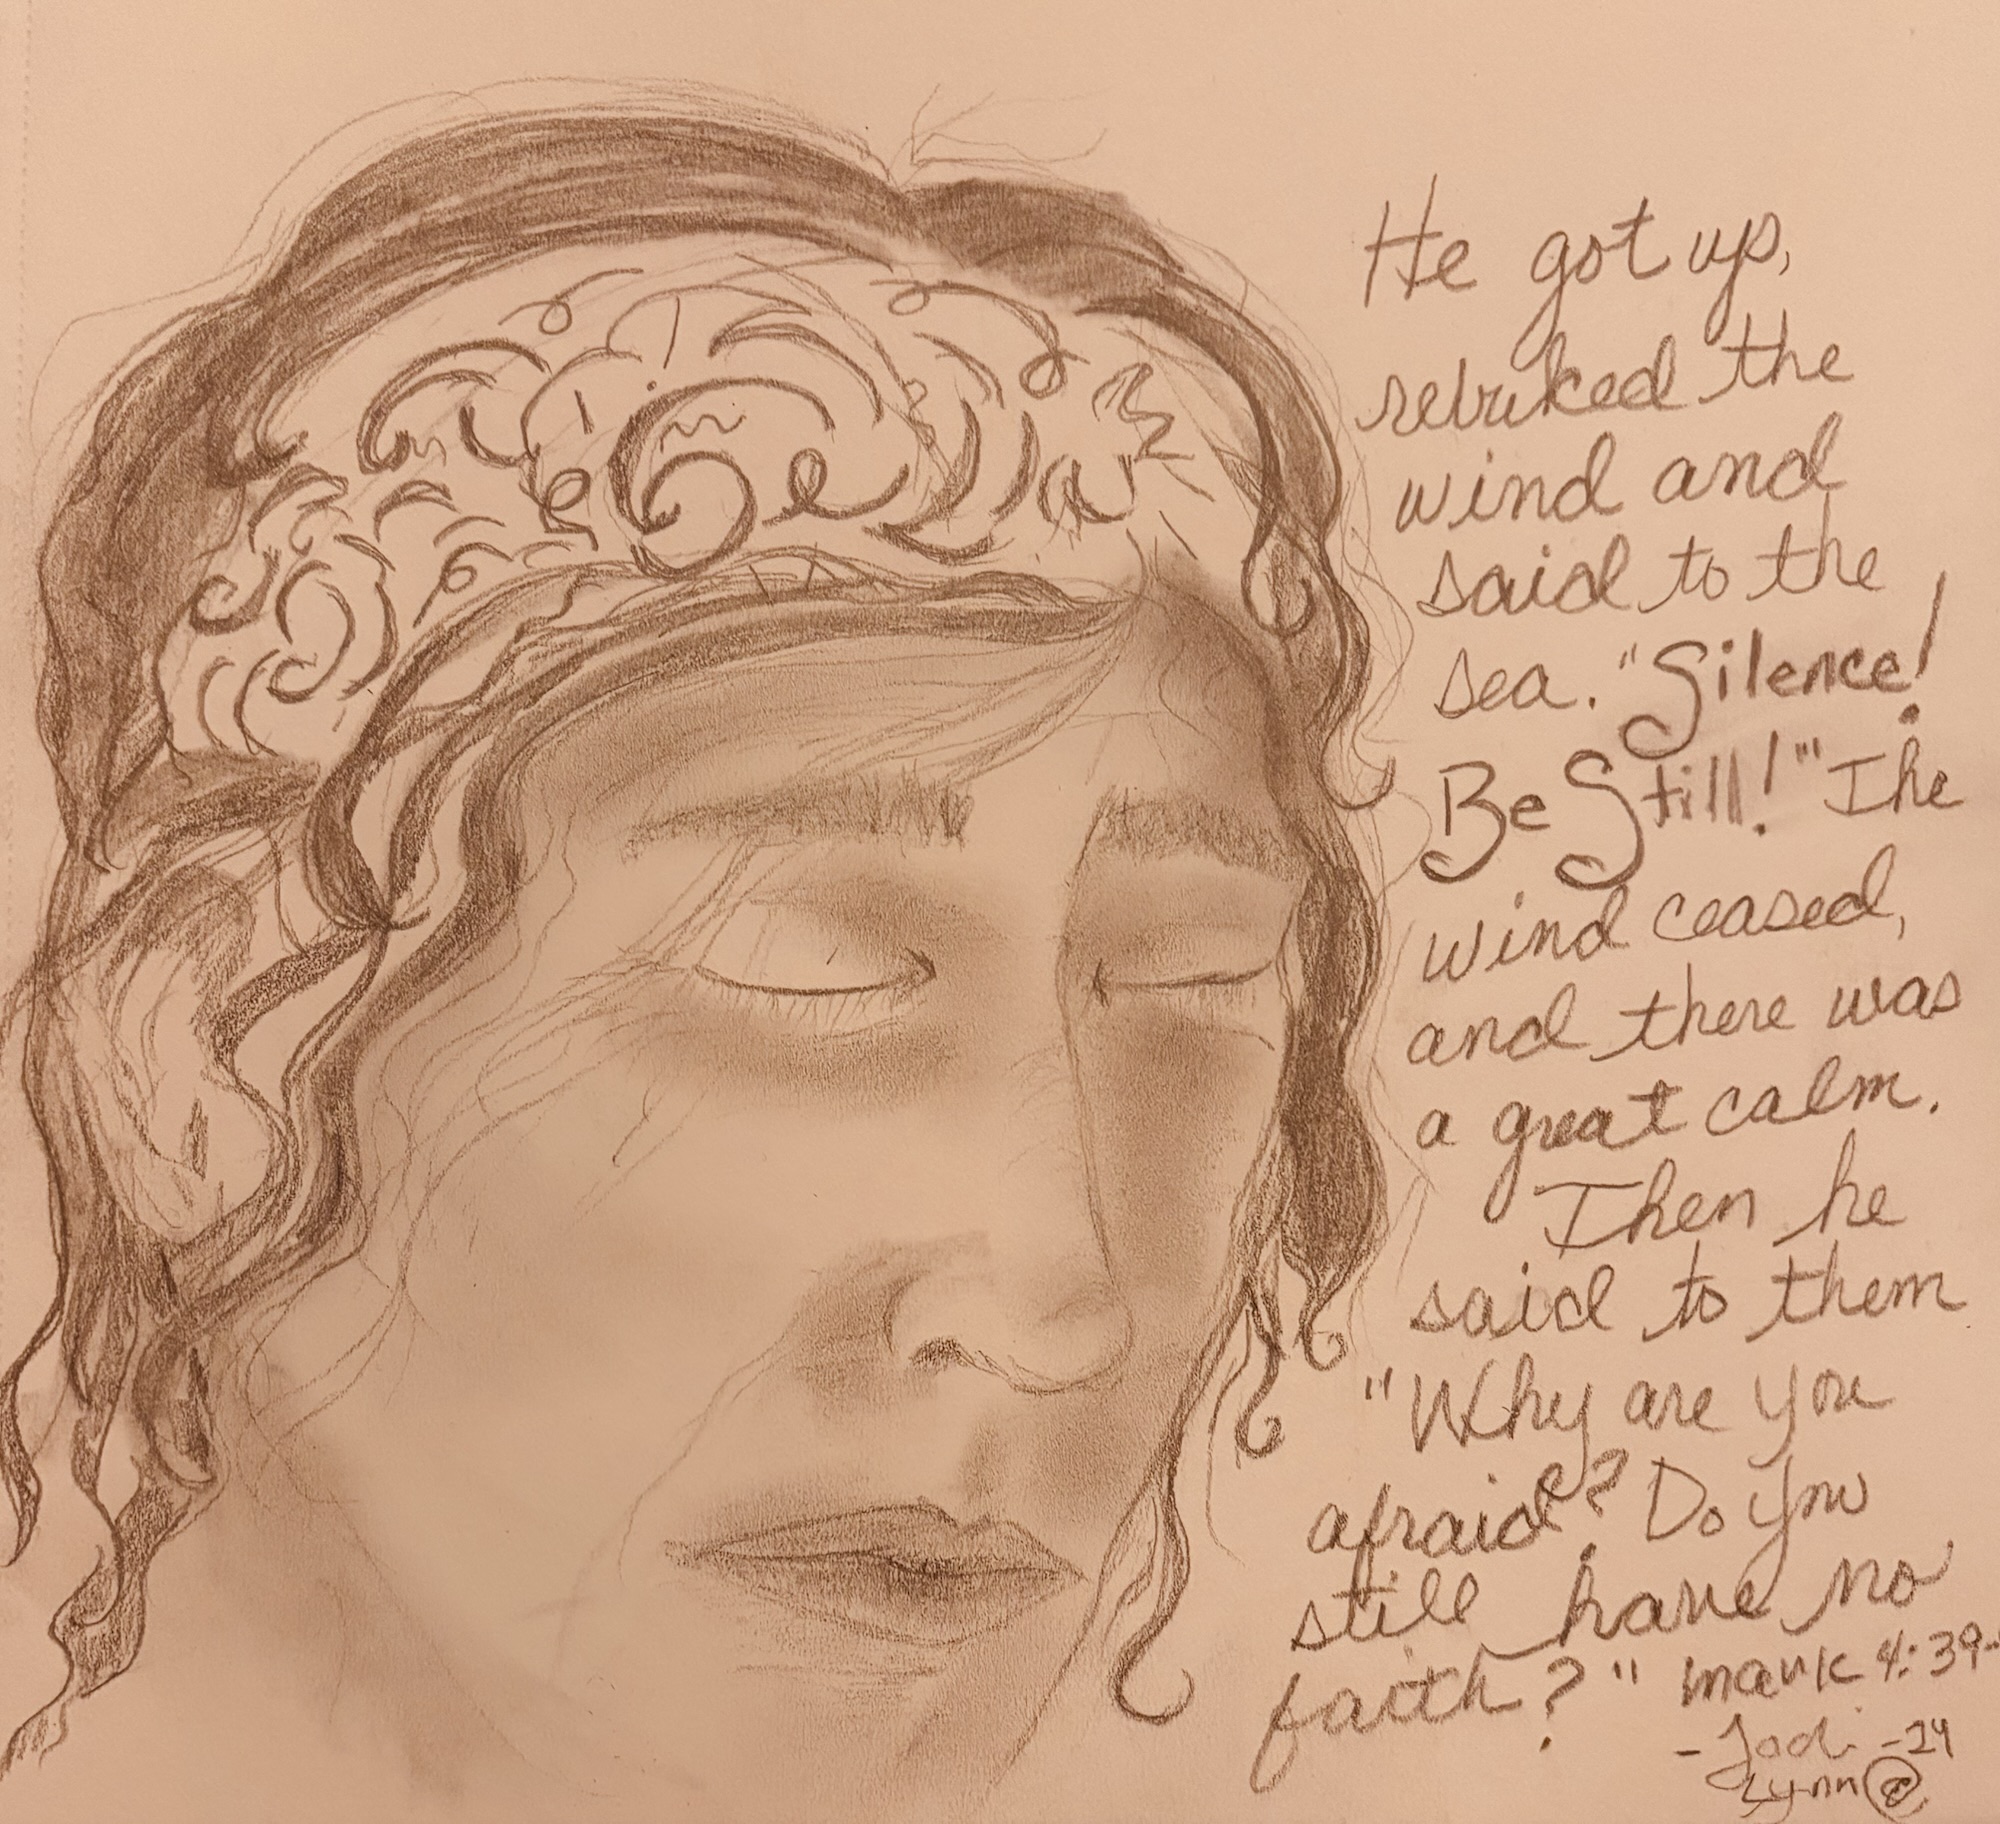 He got up,
rebuked the
wind and
said to the
sea. "Silence!
Be Still!" The
wind ceased,
and there was
a great calm.
Then he
said to them
"Why are you
afraid? Do you
still have no
faith?" Mark 4:39-
-Jodi -24
Lynn